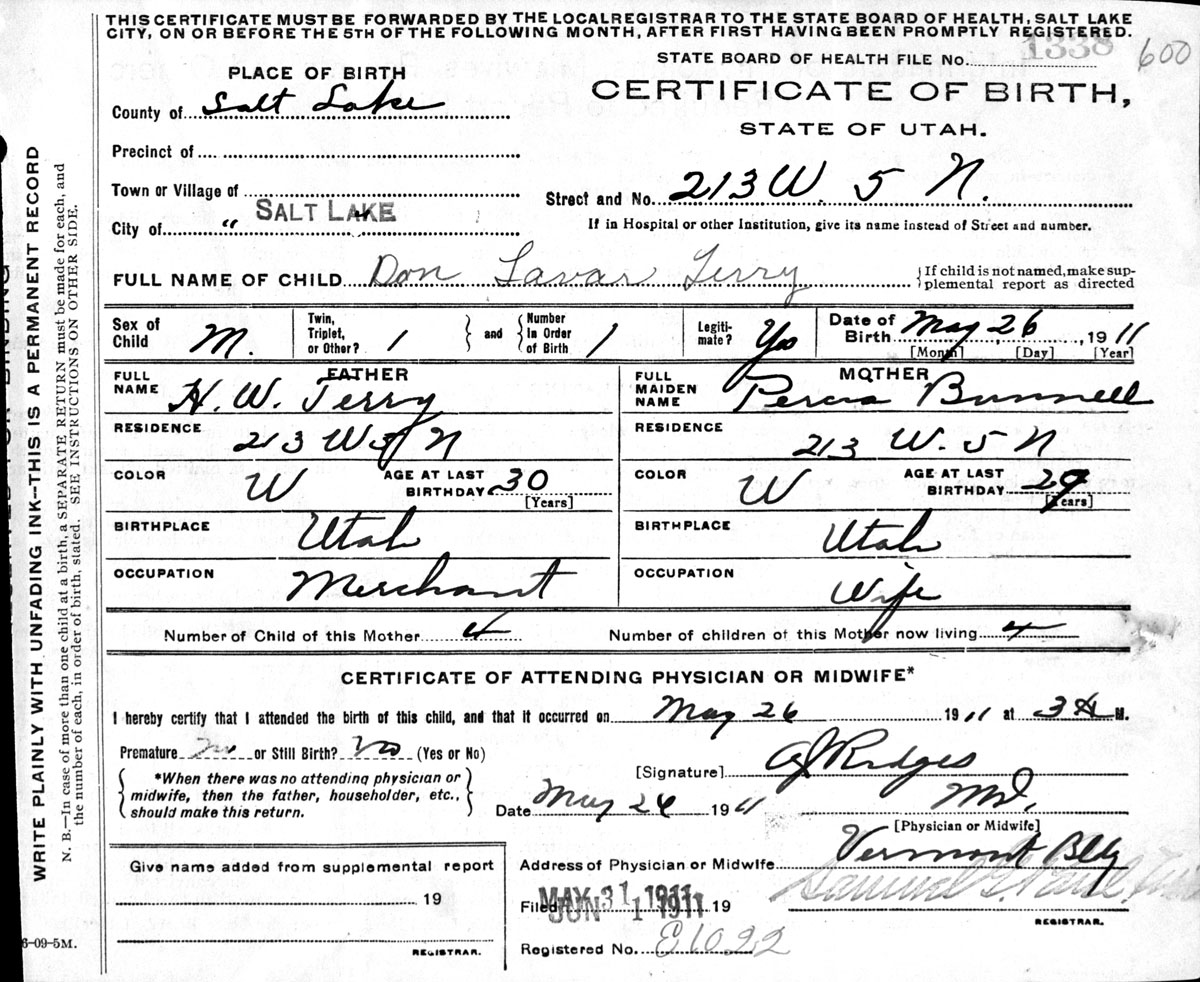 THIS CERTIFICATE MUST BE FORWARDED BY THE LOCAL REGISTRAR TO THE STATE BOARD OF HEALTH, SALT LAKE
CITY, ON OR BEFORE THE 5TH OF THE FOLLOWING MONTH, AFTER FIRST HAVING BEEN PROMPTLY REGISTERED.
STATE BOARD OF HEALTH FILE No. 1338 600
PLACE OF BIRTH
CERTIFICATE OF BIRTH,
County of Salt Lake
STATE OF UTAH.
Precinct of
Town or Village of
Street and No. 213 W 5 N.
City of " SALT LAKE
If in Hospital or other Institution, give its name instead of Street and number.
FULL NAME OF CHILD Don Lavar Terry {If child is not named, make sup-
plemental report as directed
Sex of Child M. Twin, Triplet, or Other? 1 and Number In Order of Birth 1 Legiti-mate? Yes Date of Birth May 26, 1911
[Month] [Day] [Year]
FATHER MOTHER
FULL NAME H. W. Terry FULL MAIDEN NAME Bunnell
RESIDENCE 213 W 5 N RESIDENCE 213 W. 5 N
COLOR W AGE AT LAST BIRTHDAY 30 [Years] COLOR W AGE AT LAST BIRTHDAY 29 [Years]
BIRTHPLACE Utah BIRTHPLACE Utah
OCCUPATION Merchant OCCUPATION Wife
Number of Child of this Mother 4 Number of children of this Mother now living 4
CERTIFICATE OF ATTENDING PHYSICIAN OR MIDWIFE*
I hereby certify that I attended the birth of this child, and that it occurred on May 26 1911 at 3 A M.
Premature no or Still Birth? no (Yes or No)
[Signature] Ridges
*When there was no attending physician or
midwife, then the father, householder, etc.,
should make this return.
Date May 26 1911 MD.
[Physician or Midwife]
Give name added from supplemental report
Address of Physician or Midwife Vermont Bldg
19
Filed MAY 31 1911 19
JUN 1 1911
Samuel G.
REGISTRAR.
Registered No. E1022
REGISTRAR.
6-09-5M.
WRITE PLAINLY WITH UNFADING INK—THIS IS A PERMANENT RECORD
N. B.—In case of more than one child at a birth, a SEPARATE RETURN must be made for each, and
the number of each, in order of birth, stated. SEE INSTRUCTIONS ON OTHER SIDE.